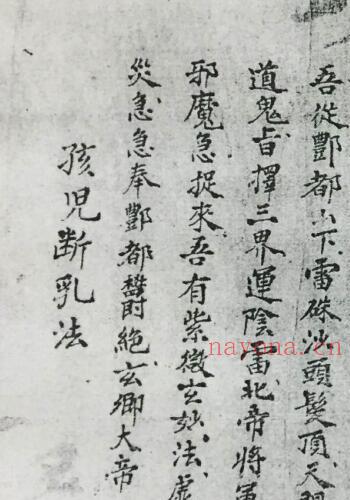 吾從酆都山下雷硃沙頭髮頂天
道鬼旨擇三界運陰雷北帝將軍
邪魔急捉來吾有紫微玄妙法虛
災急急奉酆都替絕玄卿大帝
孩児断乳法
nayona.cn